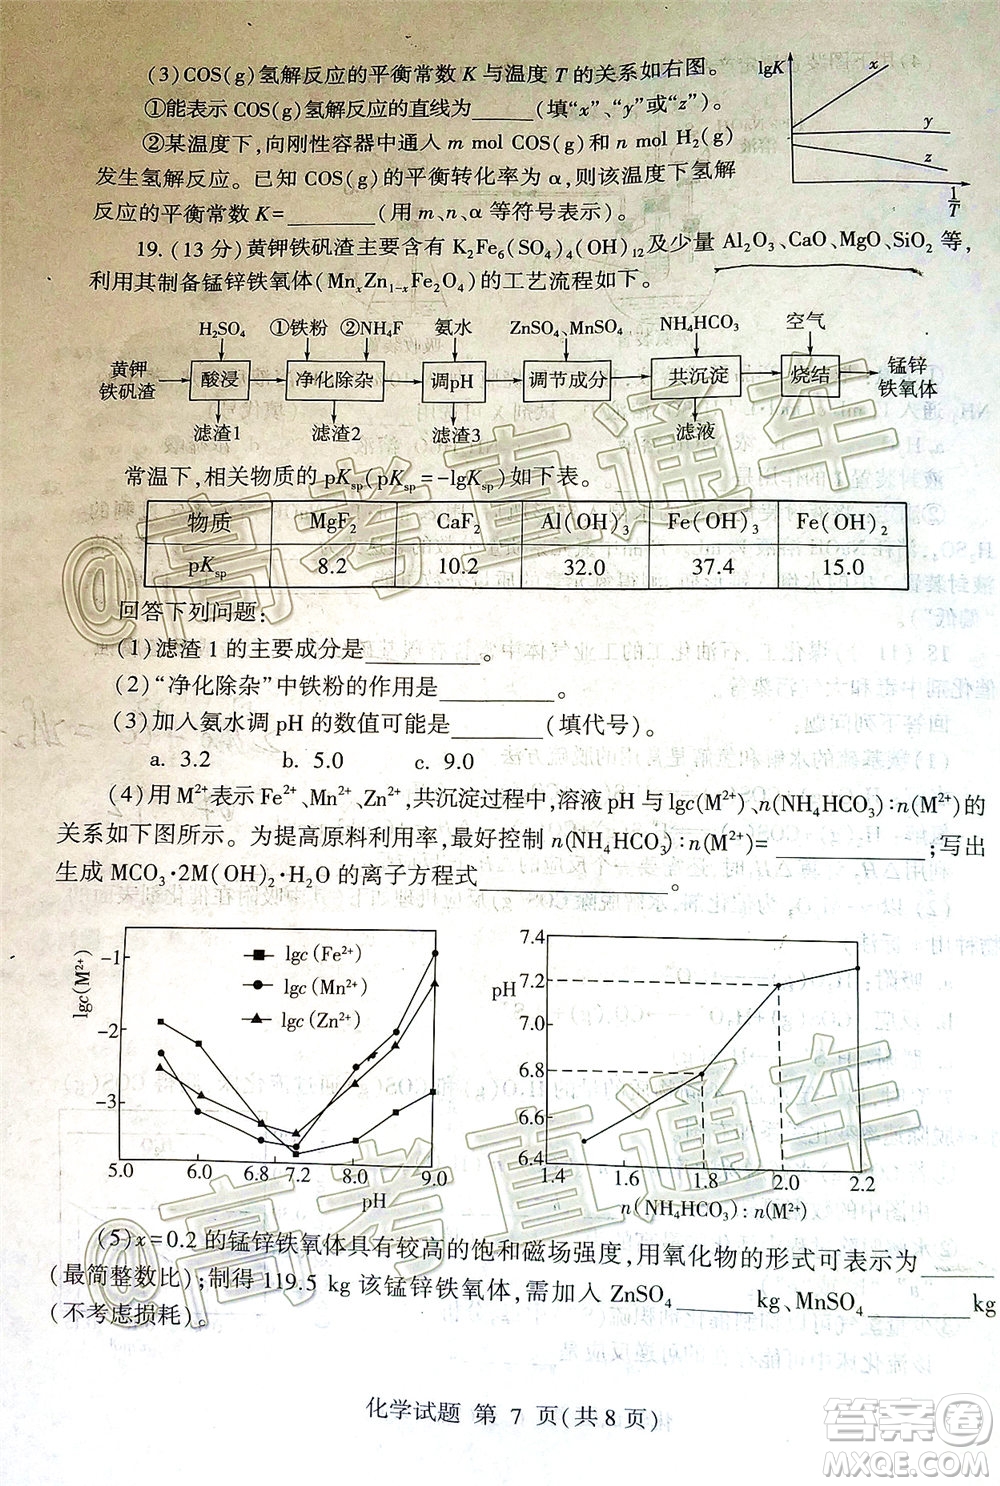 (3)COS(g)氢解反应的平衡常数 K 与温度 T 的关系如右图。
①能表示 COS(g)氢解反应的直线为______(填“x”、“y”或“z”)。
②某温度下,向刚性容器中通入 m mol COS(g)和 n mol H₂(g)
发生氢解反应。已知 COS(g)的平衡转化率为 α,则该温度下氢解
反应的平衡常数 K=________(用 m、n、α 等符号表示)。
lgK
x
y
z
1/T
19.(13 分)黄钾铁矾渣主要含有 K₂Fe₆(SO₄)₄(OH)₁₂及少量 Al₂O₃、CaO、MgO、SiO₂ 等,
利用其制备锰锌铁氧体(MnₓZn₁₋ₓFe₂O₄)的工艺流程如下。
H₂SO₄ ①铁粉 ②NH₄F 氨水 ZnSO₄、MnSO₄ NH₄HCO₃ 空气
黄钾铁矾渣 酸浸 净化除杂 调pH 调节成分 共沉淀 烧结 锰锌铁氧体
滤渣1 滤渣2 滤渣3 滤液
常温下,相关物质的 pKsp(pKsp=-lgKsp)如下表。
物质 MgF₂ CaF₂ Al(OH)₃ Fe(OH)₃ Fe(OH)₂
pKsp 8.2 10.2 32.0 37.4 15.0
回答下列问题:
(1)滤渣 1 的主要成分是________。
(2)“净化除杂”中铁粉的作用是________。
(3)加入氨水调 pH 的数值可能是________(填代号)。
a. 3.2 b. 5.0 c. 9.0
(4)用 M²⁺表示 Fe²⁺、Mn²⁺、Zn²⁺,共沉淀过程中,溶液 pH 与 lgc(M²⁺)、n(NH₄HCO₃)∶n(M²⁺)的
关系如下图所示。为提高原料利用率,最好控制 n(NH₄HCO₃)∶n(M²⁺)=__________;写出
生成 MCO₃·2M(OH)₂·H₂O 的离子方程式__________。
lgc(M²⁺)
-1
-2
-3
lgc(Fe²⁺)
lgc(Mn²⁺)
lgc(Zn²⁺)
5.0 6.0 6.8 7.2 8.0 9.0
pH
pH
7.4
7.2
7.0
6.8
6.6
6.4
1.4 1.6 1.8 2.0 2.2
n(NH₄HCO₃)∶n(M²⁺)
(5)x=0.2 的锰锌铁氧体具有较高的饱和磁场强度,用氧化物的形式可表示为______
(最简整数比);制得 119.5 kg 该锰锌铁氧体,需加入 ZnSO₄______kg、MnSO₄________kg
(不考虑损耗)。
化学试题 第 7 页(共 8 页)
@高考直通车
@高考直通车
答案圈
MXQE.COM